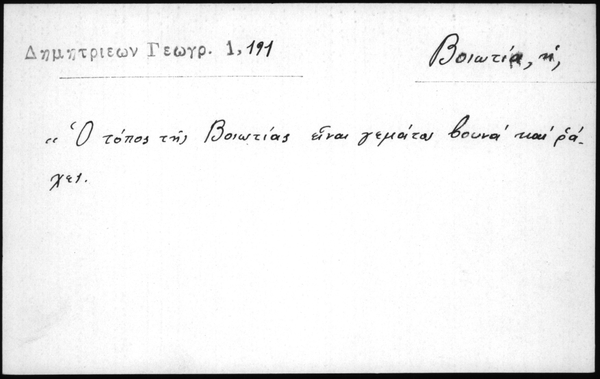 Δημητριεων Γεωγρ. 1,191
Βοιωτία, ἡ,
« Ὁ τόπος τῆς Βοιωτίας εἶναι γεμάτος βουνά καί ῥά-
χες.